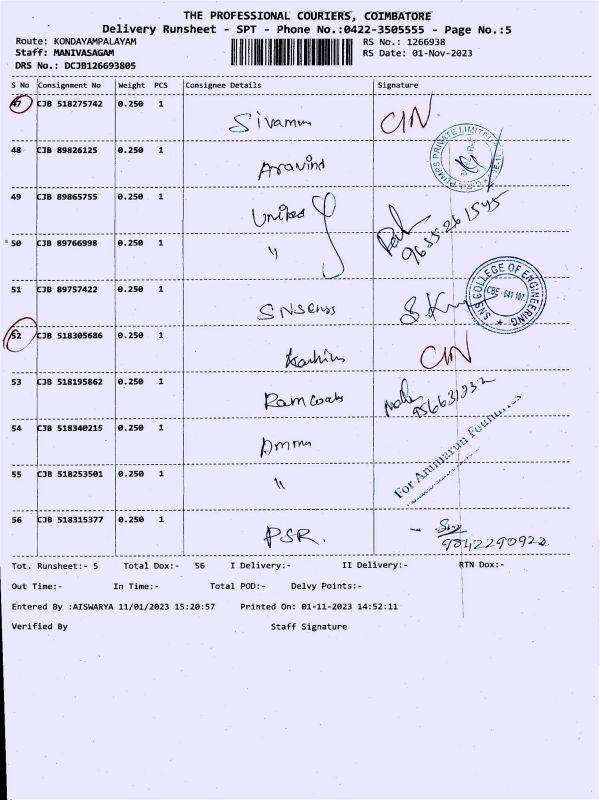 THE PROFESSIONAL COURIERS, COIMBATORE
Delivery Runsheet - SPT - Phone No.:0422-3505555 - Page No.:5
Route: KONDAYAMPALAYAM
RS No.: 1266938
Staff: MANIVASAGAM
RS Date: 01-Nov-2023
DRS No.: DCJB126693805
S No Consignment No Weight PCS Consignee Details Signature
47 CJB 518275742 0.250 1
CIN
48 CJB 89826125 0.250 1 Aravind
49 CJB 89865755 0.250 1 United
50 CJB 89766998 0.250 1 "
51 CJB 89757422 0.250 1
SNS COLLEGE OF ENGINEERING
CBE - 641 107.
52 CJB 518305686 0.250 1
CIN
53 CJB 518195862 0.250 1
54 CJB 518340215 0.250 1 Ammu
For Ammarun Foundries
55 CJB 518253501 0.250 1 "
56 CJB 518315377 0.250 1 PSR.
9042290922
Tot. Runsheet:- 5 Total Dox:- 56 I Delivery:- II Delivery:- RTN Dox:-
Out Time:- In Time:- Total POD:- Delvy Points:-
Entered By :AISWARYA 11/01/2023 15:20:57 Printed On: 01-11-2023 14:52:11
Verified By Staff Signature